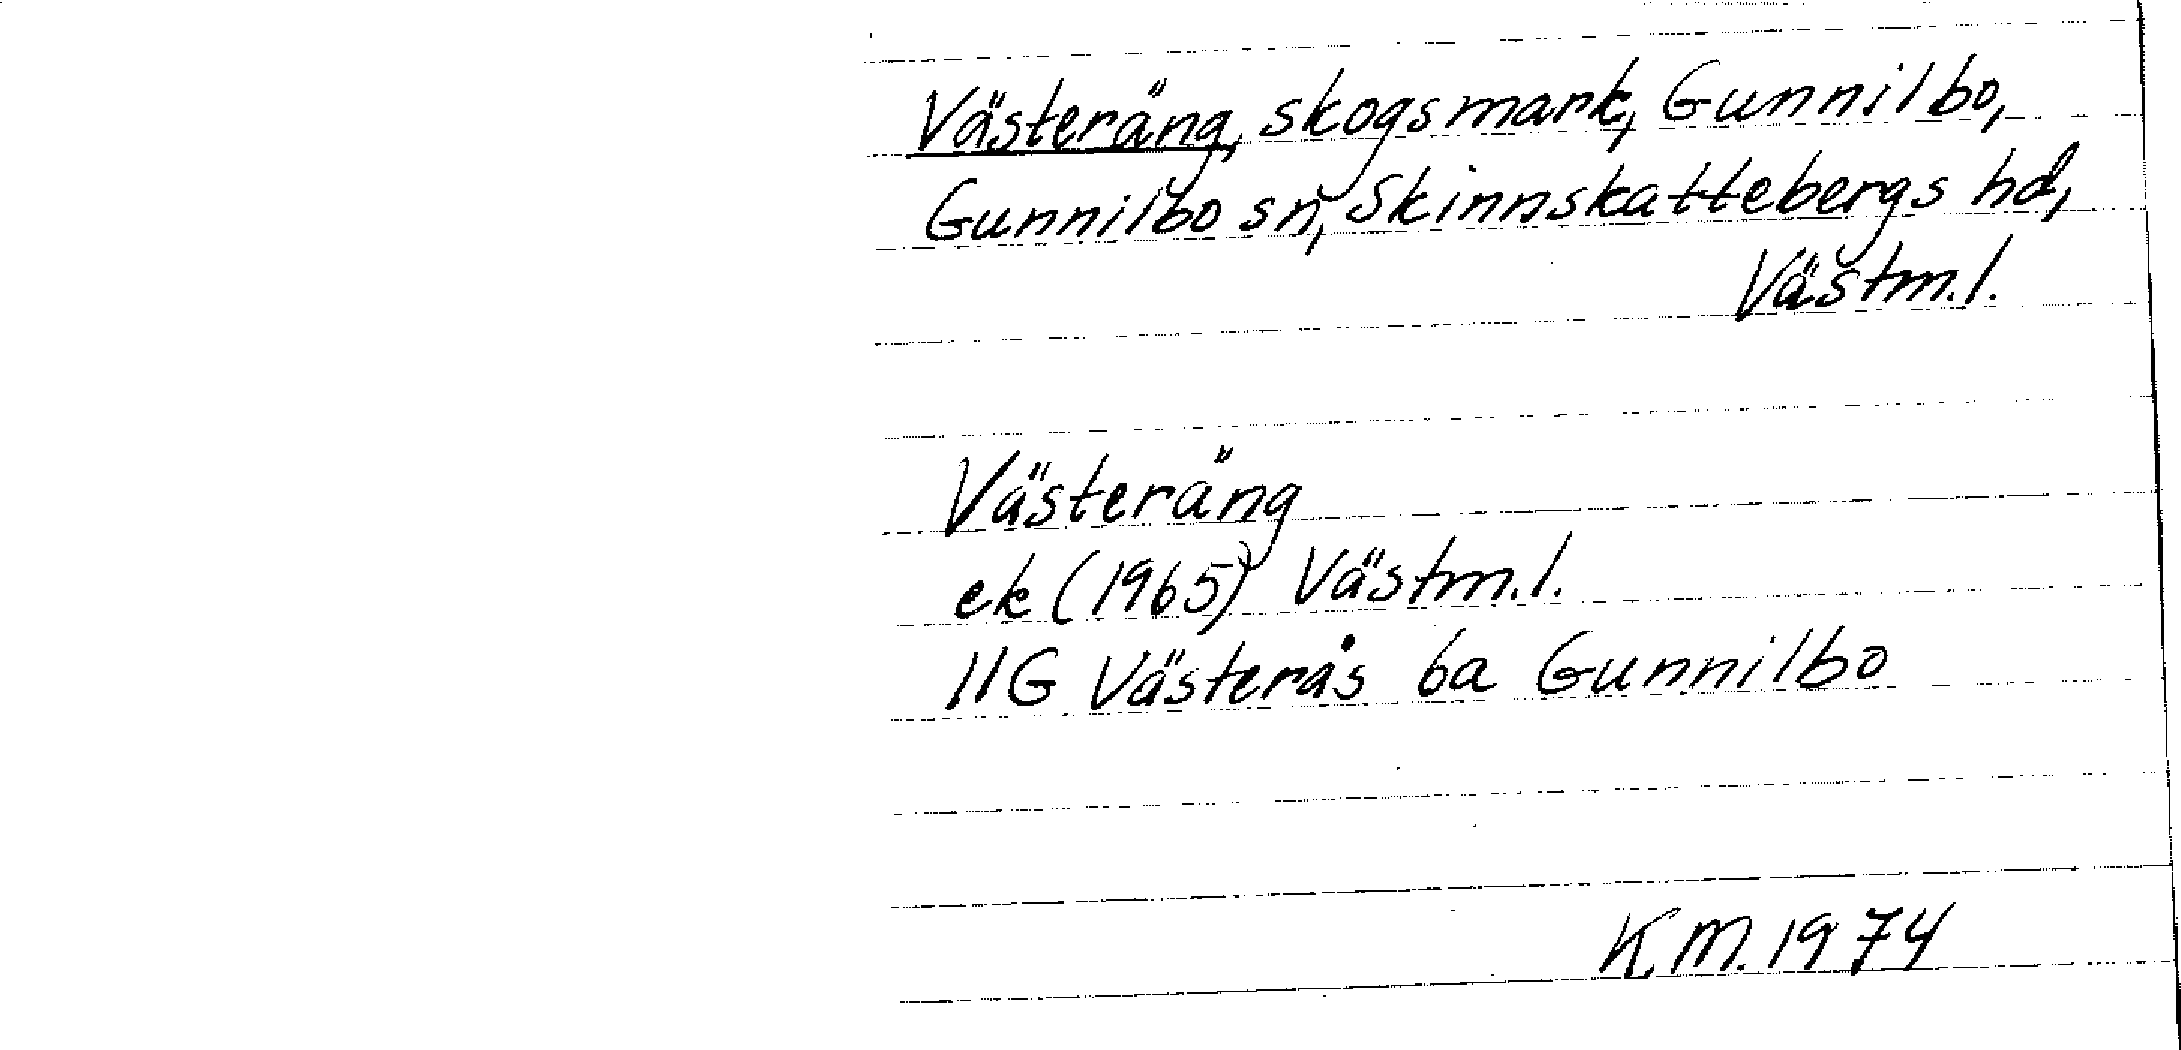 Västeräng, skogsmark, Gunnilbo,
Gunnilbo sn, Skinnskattebergs hd,
Västm.l.
Västeräng
ek (1965) Västm.l.
11G Västerås 6a Gunnilbo
K.M. 1974